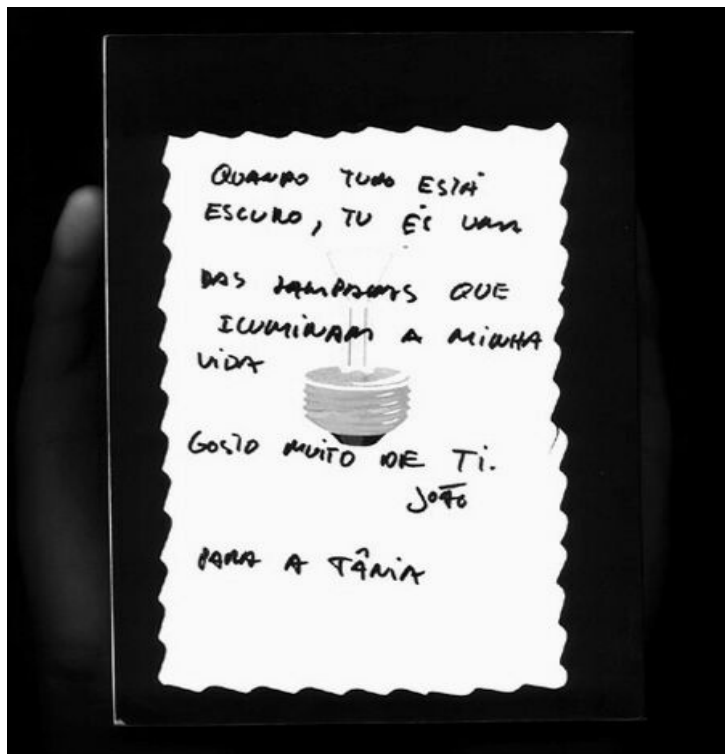 QUANDO TUDO ESTÁ
ESCURO, TU ÉS UMA
DAS LAMPADAS QUE
ILUMINAM A MINHA
VIDA
GOSTO MUITO DE TI.
JOÃO
PARA A TÂNIA